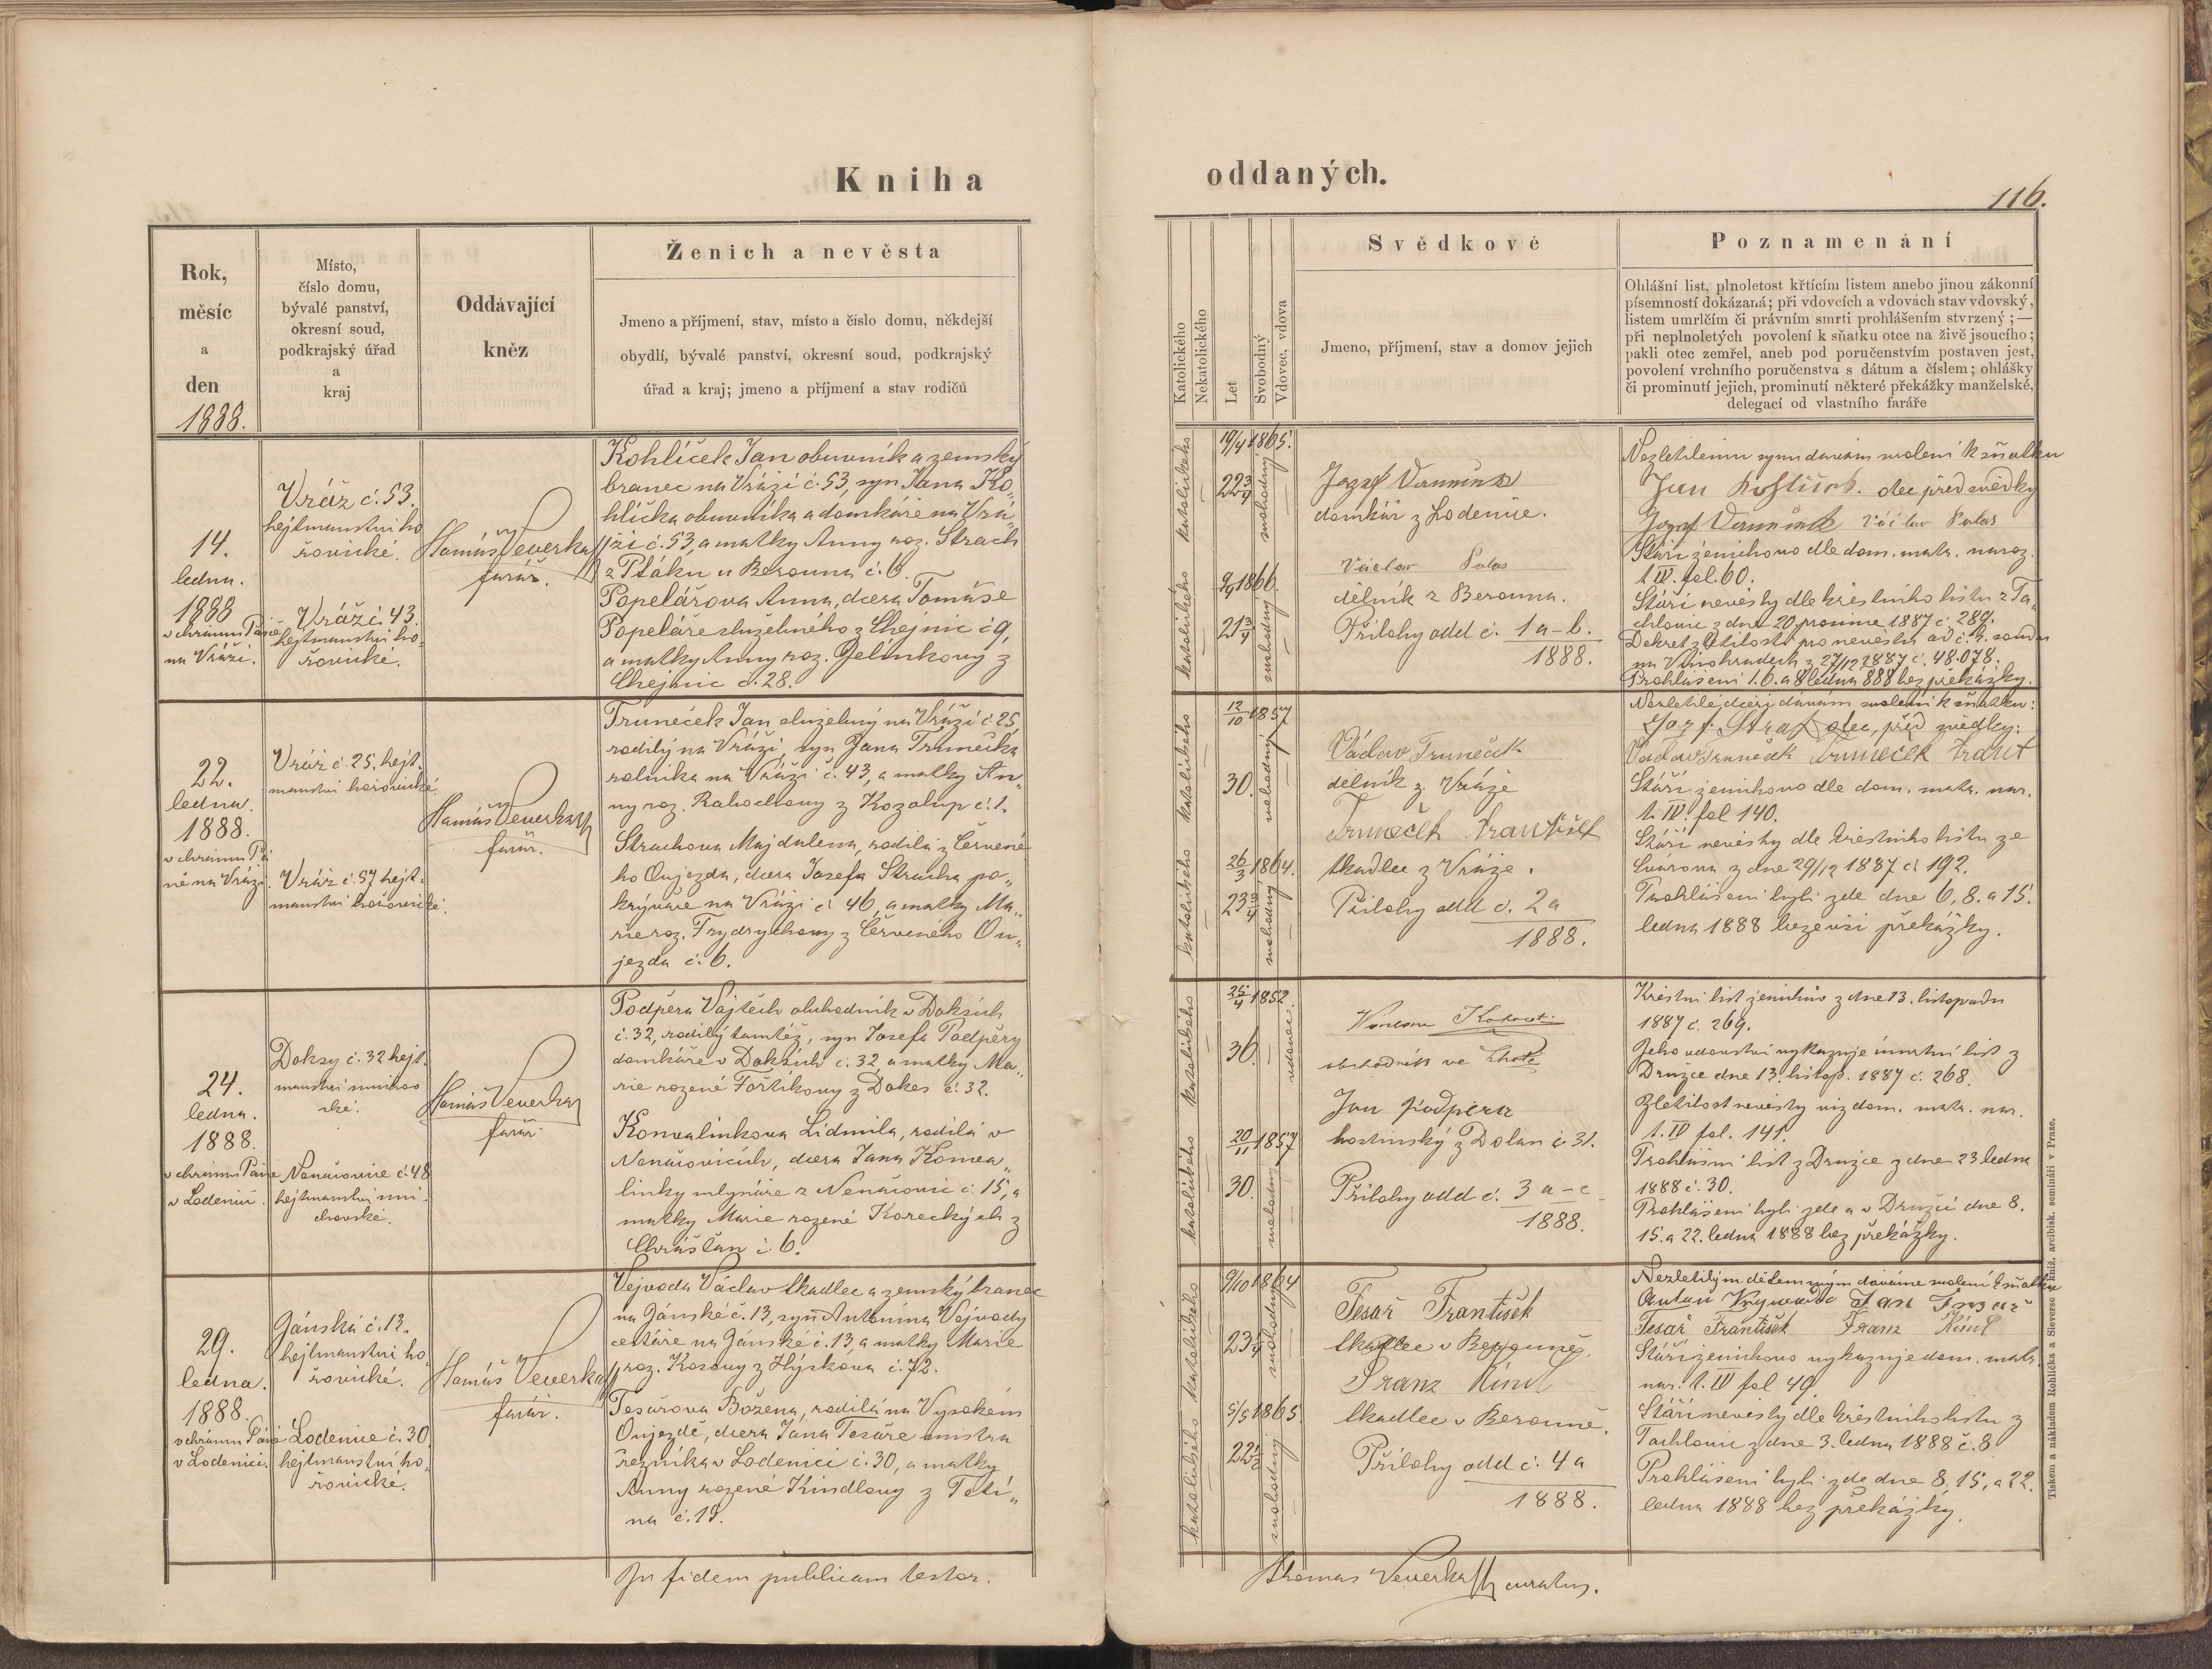 Kniha
oddaných.
116.
Rok,
měsíc
a
den
1888.
Místo,
číslo domu,
bývalé panství,
okresní soud,
podkrajský úřad
a
kraj
Oddávající
kněz
Ženich a nevěsta
Jmeno a příjmení, stav, místo a číslo domu, někdejší
obydlí, bývalé panství, okresní soud, podkrajský
úřad a kraj; jmeno a příjmení a stav rodičů
Katolického
Nekatolického
Let
Svobodný
Vdovec, vdova
Svědkové
Jmeno, příjmení, stav a domov jejich
Poznamenání
Ohlášní list, plnoletost křtícím listem anebo jinou zákonní
písemností dokázaná; při vdovcích a vdovách stav vdovský,
listem umrlčím či právním smrti prohlášením stvrzený; —
při neplnoletých povolení k sňatku otce na živě jsoucího;
pakli otec zemřel, aneb pod poručenstvím postaven jest,
povolení vrchního poručenstva s dátum a číslem; ohlášky
či prominutí jejich, prominutí některé překážky manželské,
delegací od vlastního faráře
14.
ledna.
1888
v chrámu Páně
na Vráži.
Vráž č. 53.
hejtmanství ho
řovické.
Vráž č 43.
hejtmanství ho-
řovické.
Tomáš Veverka
farář.
Kohlíček Jan obuvník a zemský
branec na Vráži č. 53, syn Jana Ko„
hlíčka obuvníka a domkáře na Vrá„
ži č. 53, a matky Anny roz. Strach
z Ptáku u Berouna č. 6.
Popelářova Anna, dcera Tomáše
Popeláře služebného z Chejnic č 9,
a matky Anny roz. Jelínkový z
Chejnic č. 28.
katolického
19/4 1865.
22 3/4
svobodný
katolického
9/4 1866.
21 3/4
svobodný
Jozef
domkář z Loděnice.
Václav Palas
dělník z Berouna.
Přílohy odd č. 1 a-b.
1888.
Nezletilému synu dávám svolení k sňatku
Jan otec před svědky
Jozef Václav Palas
Stáří ženichovo dle dom. matr. naroz.
t. IV. fol. 60.
Stáří nevěsty dle křestního listu z Ta„
chlovic z dne 20 prosince 1887 č. 289.
Dekret zletilosti pro nevěstu od c. k. soudu
na Vinohradech z 27/12 1887 č. 48.078.
Prohlášeni 1. 6. a 8 ledna 888 bez překážky.
22.
ledna.
1888.
v chrámu Pá
ně na Vráži.
Vráž č. 25. hejt.
manství hořovické.
Vráž č. 57 hejt.
manství hořovické.
Tomáš Veverka
farář.
Truneček Jan služebný na Vráži č 25
rodilý na Vráži, syn Jana Trunečka
rolníka na Vráži č. 43, a matky An„
ny roz. z Kozolup č. 1.
Strachova Majdalena, rodilá z Červené
ho Oujezda, dcera Josefa Stracha po„
krývače na Vráži č 46, a matky Ma„
rie roz. Frydrychovy z Červeného Ou„
jezda č. 6.
katolického
12/10 1857
30.
svobodný
katolického
26/3 1864.
23 3/4
svobodný
Václav Truneček
dělník z Vráže
Truneček František
tkadlec z Vráže.
Přílohy odd č. 2 a
1888.
Nezletilé dceři dávám svolení k sňatku:
Jozef Strach otec, před svědky:
Václav Truneček Truneček
Stáří ženichovo dle dom. matr. nar.
t. IV. fol 140.
Stáří nevěsty dle křestního listu ze
z dne 29/12 1887 č 192.
Prohlášeni byli zde dne 6, 8. a 15.
ledna 1888 beze vší překážky.
24.
ledna.
1888.
v chrámu Páně
v Loděnici.
Doksy č. 32 hejt.
manství smíchov
ské.
Nenačovice č 48
hejtmanství smí-
chovské.
Tomáš Veverka
farář.
Podpěra Vojtěch obchodník v Doksích
č. 32, rodilý tamtéž, syn Josefa Podpěry
domkáře v Doksích č. 32, a matky Ma„
rie rozené Foštíkovy z Dokes č. 32.
Konvalinkova Lidmila, rodilá v
Nenačovicích, dcera Jana Konva„
linky mlynáře z Nenačovic č. 15, a
matky Marie rozené Koreckých z
Chrášťan č. 6.
katolického
25/4 1852.
36.
vdovec
katolického
20/11 1857
30.
svobodný
obchodník ve Lhotě
Jan Podpěra
hostinský z Dolan č 31.
Přílohy odd č. 3 a-c
1888.
Křestní list ženichův z dne 13. listopadu
1887 č. 269.
Jeho vdovství vykazuje úmrtní list z
Družce dne 13. listop. 1887 č. 268.
Zletilost nevěsty viz dom. matr. nar.
t. IV fol. 141.
Prohlášní list z Družce z dne 23 ledna
1888 č. 30.
Prohlášeni byli zde a v Družci dne 8.
15. a 22. ledna 1888 bez překážky.
29.
ledna.
1888.
v chrámu Páně
v Loděnici.
Jánská č. 13.
hejtmanství ho„
řovické.
Loděnice č. 30
hejtmanství ho„
řovické.
Tomáš Veverka
farář.
Vejvoda Václav tkadlec a zemský branec
na Jánské č. 13, syn Antonína Vejvody
cestáře na Jánské č. 13 a matky Marie
roz. Kosovy z Hýskova č. 72.
Tesařova Božena, rodilá na Vysokém
Oujezdě, dcera Jana Tesaře mistra
řezníka v Loděnici č. 30, a matky
Anny rozené Kindlovy z Tetí„
na č. 19.
katolického
9/10 1864
23 1/4
svobodný
katolického
5/5 1865
22 1/2
svobodný
Tesař František
tkadlec v Berouně.
Franz Kindl
tkadlec v Berouně.
Přílohy odd č. 4 a
1888.
Nezletilým dětem svým dáváme svolení k sňatku
Antan Jan
Tesař František Franz Kindl
Stáří ženichovo vykazuje dom. matr.
nar. t. IV fol 49.
Stáří nevěsty dle křestního listu z
Tachlovic z dne 3. ledna 1888 č. 8
Prohlášeni byli zde dne 8, 15, a 22.
ledna 1888 bez překážky.
In fidem publicam testor.
Thomas Veverka curatus.
Tiskem a nákladem Rohlíčka a Sieverse kníž. arcibisk. semináři v Praze.